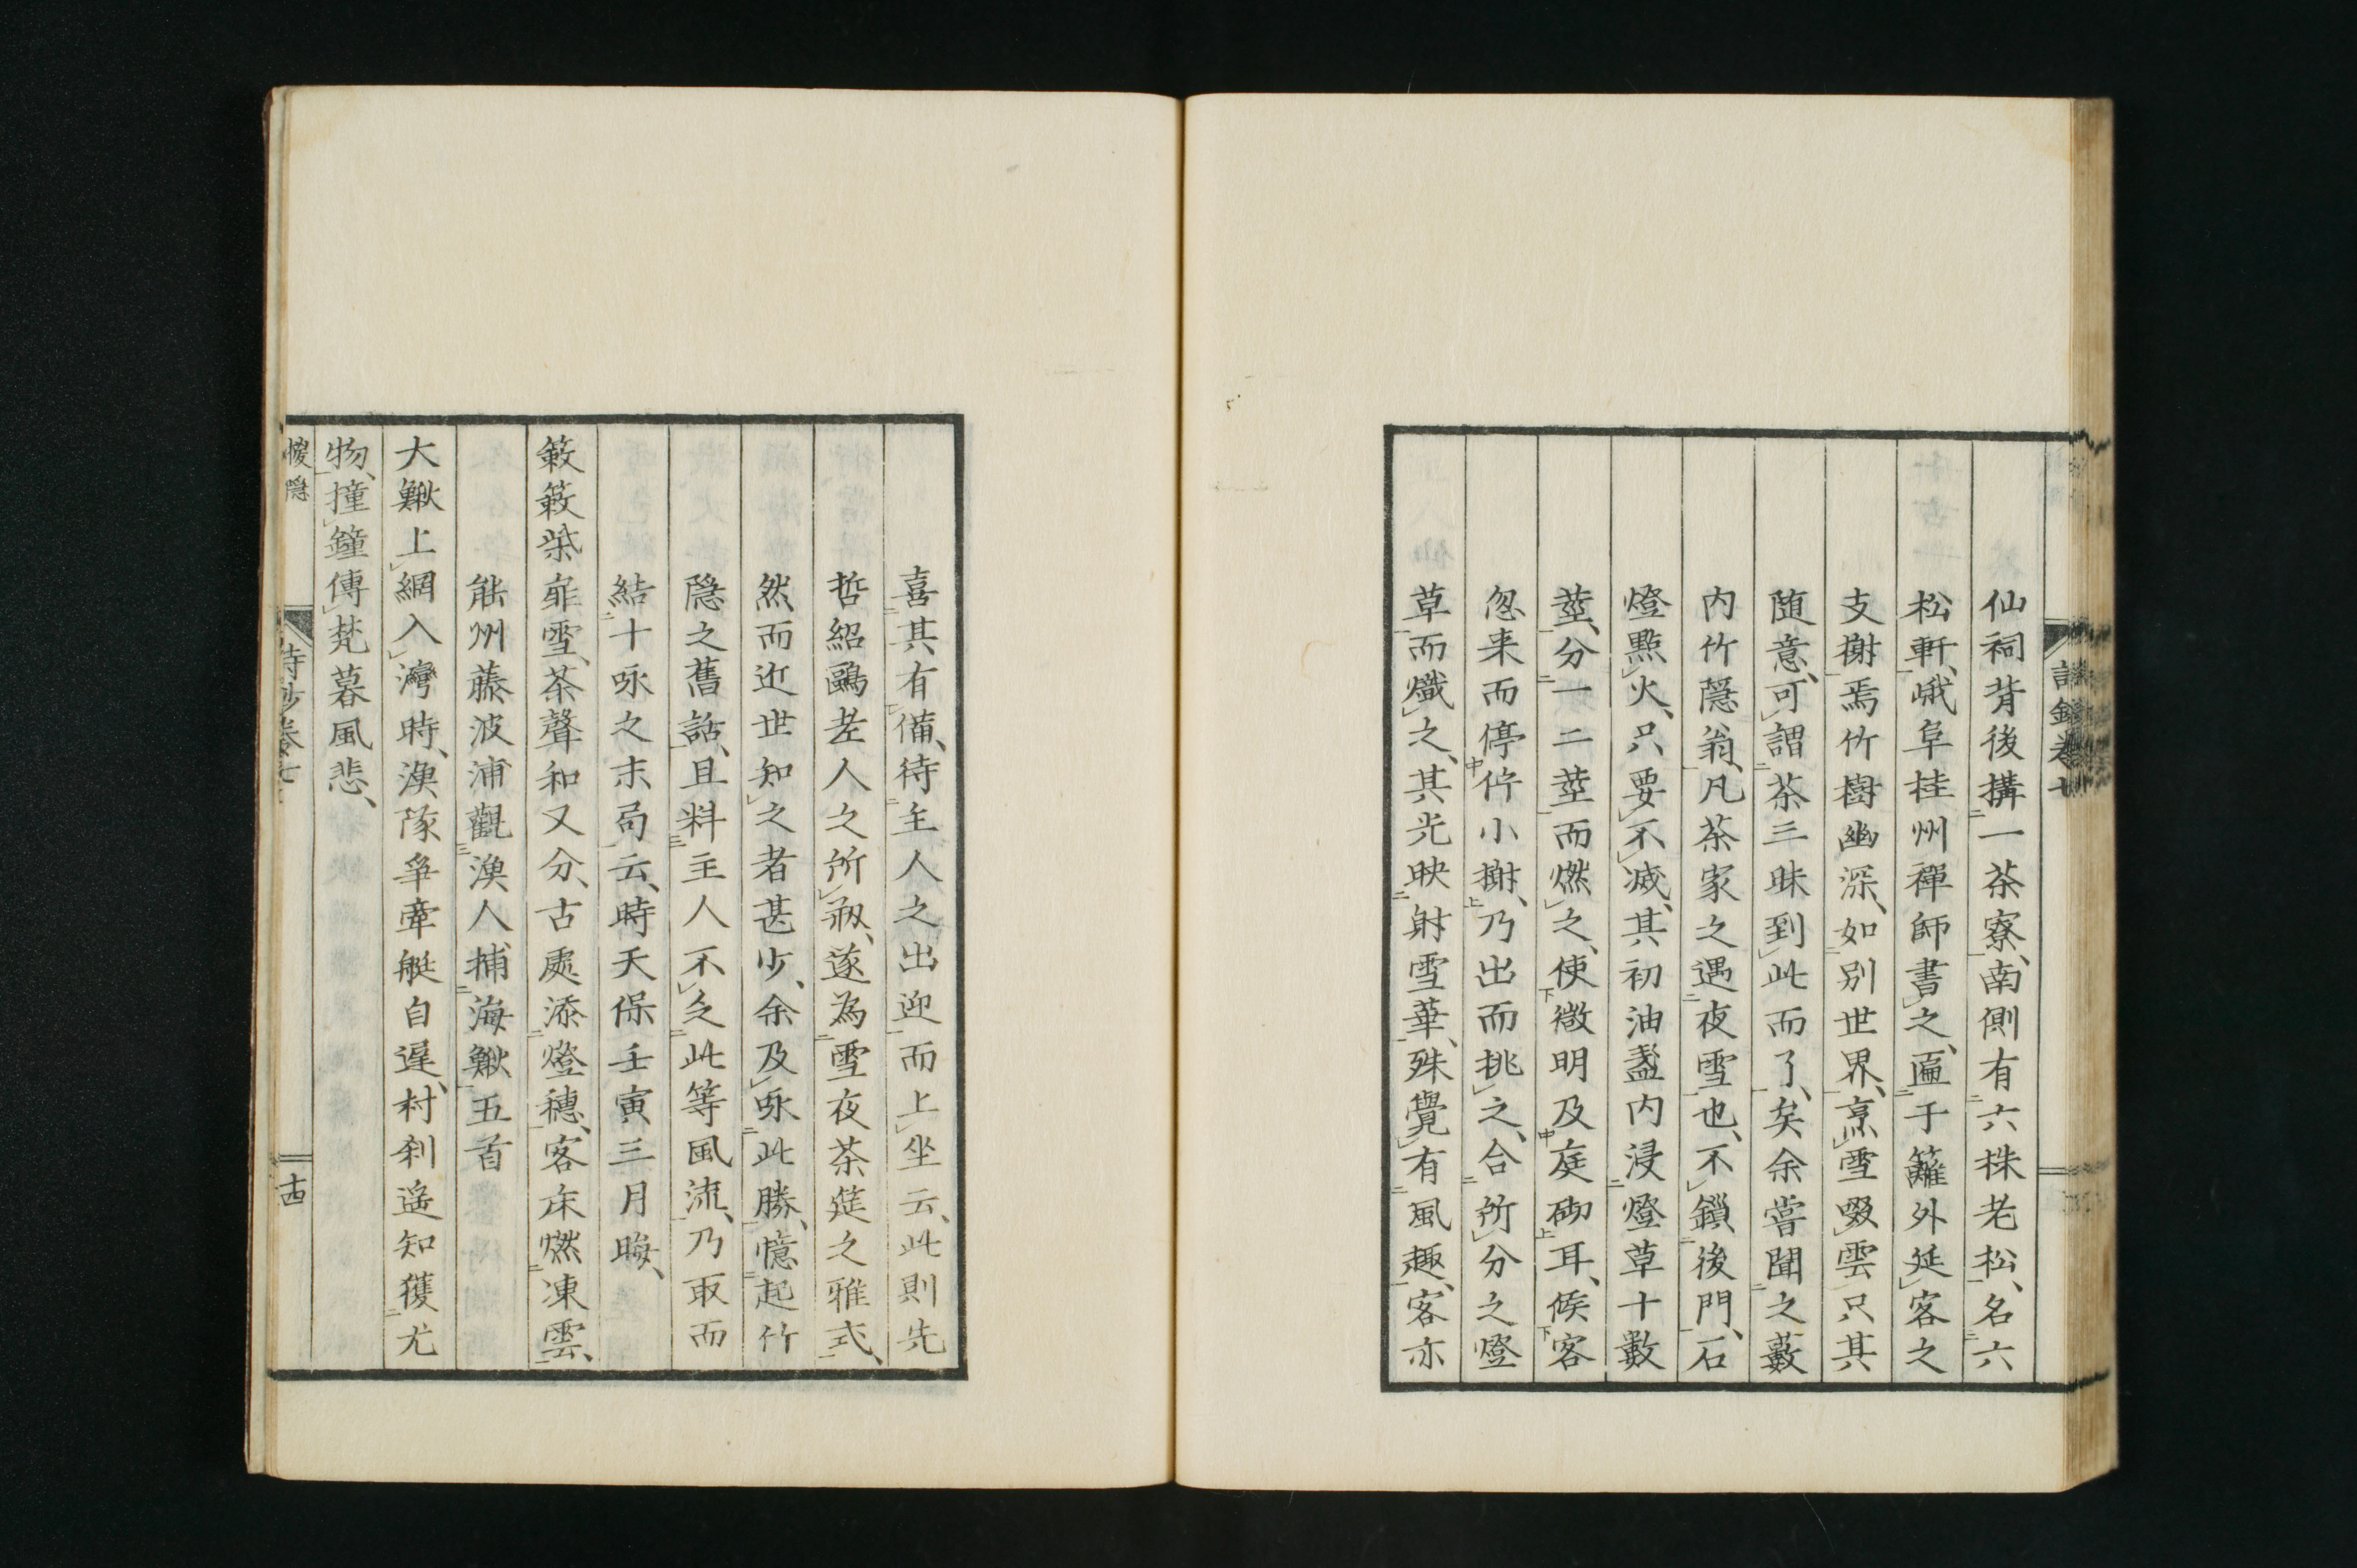 仙祠背後搆一茶寮、南側有六株老松、名六
松軒、峨阜桂州禪師書之、匾于籬外延客之
支榭焉竹樹幽深、如別世界、烹雪啜雲只其
随意、可謂茶三昧到此而了、矣余嘗聞之藪
内竹隠翁、凡茶家之遇夜雪也、不鎖後門、石
燈點火、只要不滅、其初油盞内浸燈草十數
莖、分一二莖而燃之、使微明及庭砌耳、候客
忽来而停佇小榭、乃出而挑之、合所分之燈
草而熾之、其光映射雪華、殊覺有風趣、客亦
喜其有備、待主人之出迎而上坐云、此則先
哲紹鷗老人之所剏、遂為雪夜茶筵之雅式、
然而近世知之者甚少、余及咏此勝、憶起竹
隠之舊話、且料主人不乏此等風流、乃取而
結十咏之末局云、時天保壬寅三月晦、
簌簌柴扉雪、茶聲和又分、古處添燈穗、客床燃凍雲、
能州藤波浦觀漁人捕海鰍五首
大鰍上網入灣時、漁隊爭牽艇自遲、村刹遙知獲尤
物、撞鐘傳梵暮風悲、
詩鈔巻七
十四